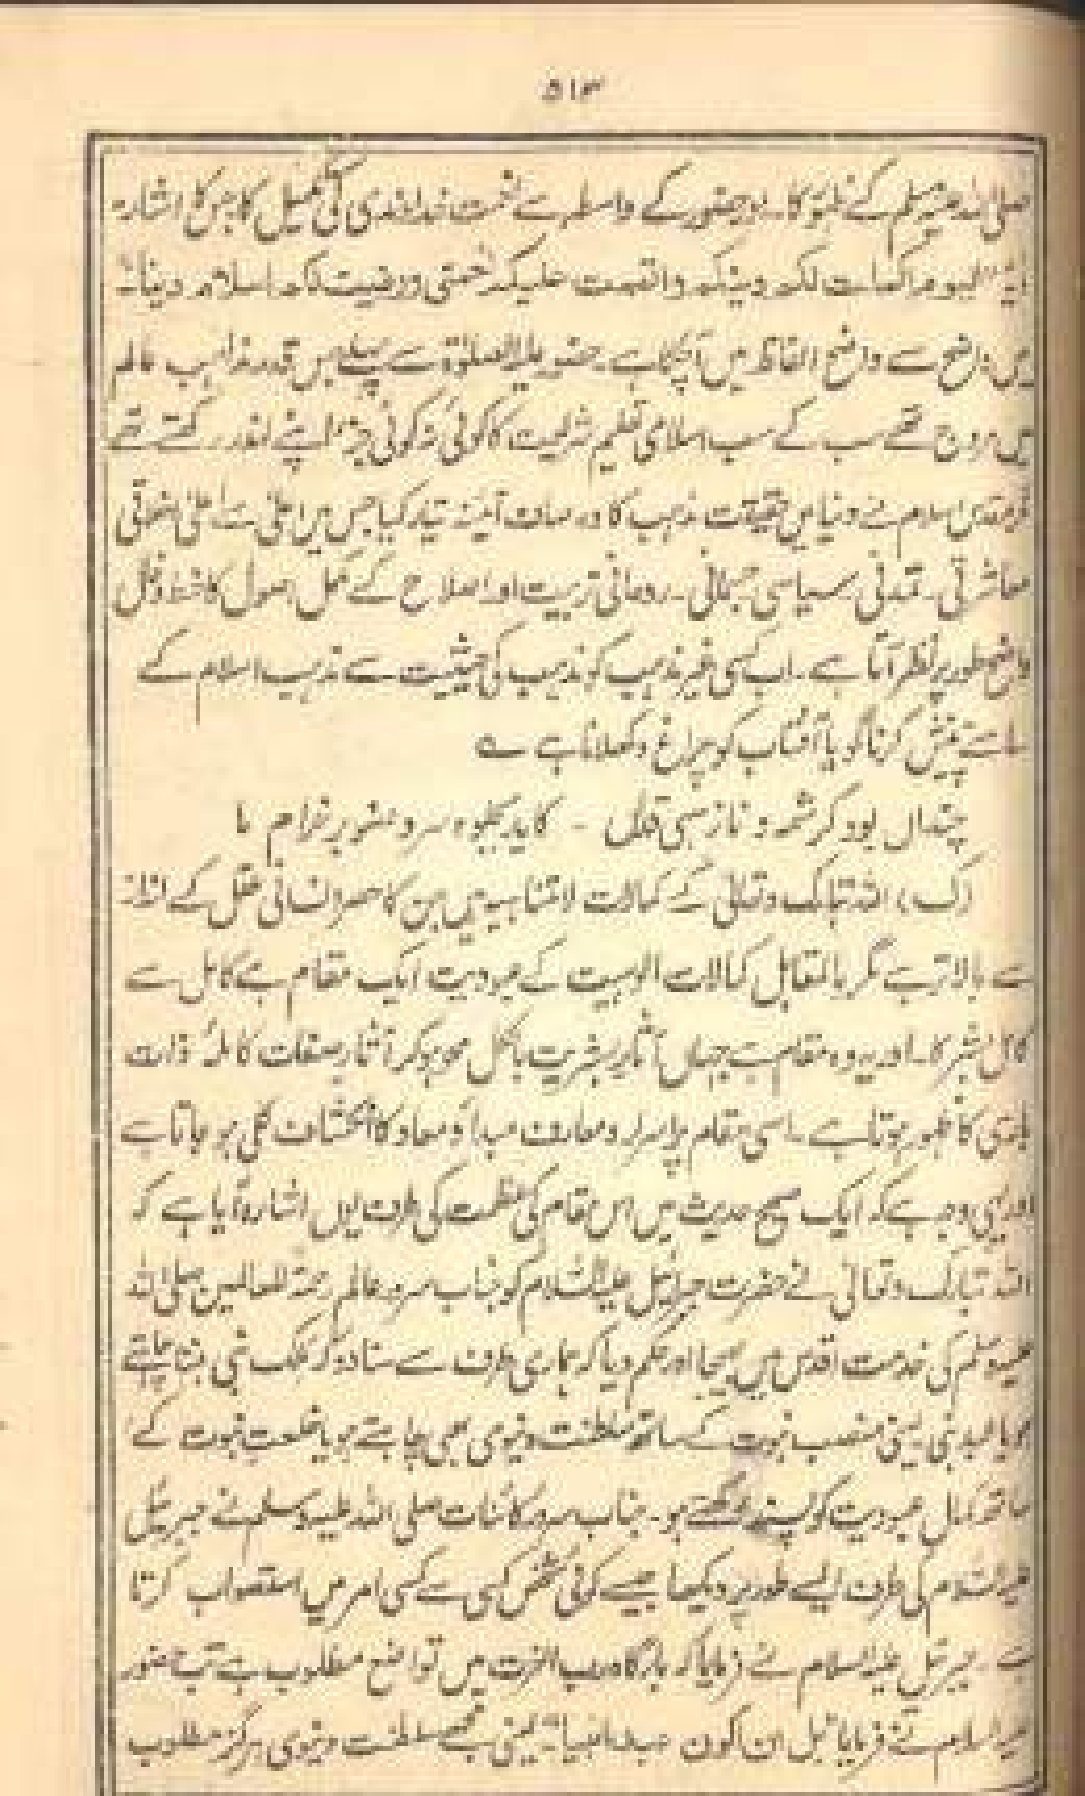 ۵۱۳
صلی اللہ علیہ وسلم کے ظہور کا۔ اور حضور کے واسطہ سے نعمت خداوندی کی تکمیل کا جس کا اشارہ
آیہ "الیوم اکملت لکم دینکم واتممت علیکم نعمتی ورضیت لکم اسلام دینا۔"
میں واضح سے واضح الفاظ میں آچکا ہے۔ حضور علیہ الصلوٰۃ سے پہلے جس قدر مذاہب عالم
میں مروج تھے سب کے سب اسلامی تعلیم شریعت کا کوئی نہ کوئی جزء اپنے اندر رکھتے تھے
مگر مقدس اسلام نے دنیا میں حقیقت مذہب کا وہ صاف آئینہ تیار کیا جس میں اعلیٰ سے اعلیٰ اخلاقی
معاشرتی۔ تمدنی۔ سیاسی۔ جسمانی۔ روحانی تربیت اور اصلاح کے مکمل اصول کا خط وخال
واضح طور پر نظر آتا ہے۔ اب کسی غیر مذہب کو مذہب کی حیثیت سے مذہب اسلام کے
سامنے پیش کرنا گویا آفتاب کو چراغ دکھلانا ہے ؎
چنداں بود کرشمہ و ناز سہی قداں - کاید بجلوہ سرو صنوبر خرام ما
(ک) اللہ تبارک وتعالیٰ کے کمالات لامتناہیہ ہیں جن کا حصر انسانی عقل کے انداز
سے بالاتر ہے مگر بالمقابل کمالات الوہیت کے عبودیت ایک مقام ہے کامل سے
کامل بشر کا۔ اور یہ وہ مقام ہے جہاں آثار بشریت بالکل محو ہوکر آثار صفات کاملہ ذات
باری کا ظہور ہوتا ہے۔ اسی مقام پر اسرار ومعارف مبدأ ومعاد کا انکشاف کلی ہو جاتا ہے
اور یہی وجہ ہے کہ ایک صحیح حدیث میں اس مقام کی عظمت کی طرف یوں اشارہ آیا ہے کہ
اللہ تبارک وتعالیٰ نے حضرت جبرائیل علیہ السلام کو جناب سرور عالم رحمۃ للعالمین صلی اللہ
علیہ وسلم کی خدمت اقدس میں بھیجا اور حکم دیا کہ ہماری طرف سے سنا دو کہ ملک نبی بننا چاہتے
ہو یا عبد نبی۔ یعنی منصب نبوت کے ساتھ سلطنت دنیوی بھی چاہتے ہو یا خلعت نبوت کے
ساتھ کمال عبودیت کو پسند رکھتے ہو۔ جناب سرور کائنات صلی اللہ علیہ وسلم نے جبریل
علیہ السلام کی طرف ایسے طور پر دیکھا جیسے کوئی شخص کسی سے کسی امر میں استصواب کرتا
ہے۔ جبرئیل علیہ السلام نے فرمایا کہ بارگاہ رب العزت میں تواضع مطلوب ہے تب حضور
علیہ السلام نے فرمایا "بل ان اکون عبدا نبیا" یعنی مجھے سلطنت دنیوی ہرگز مطلوب